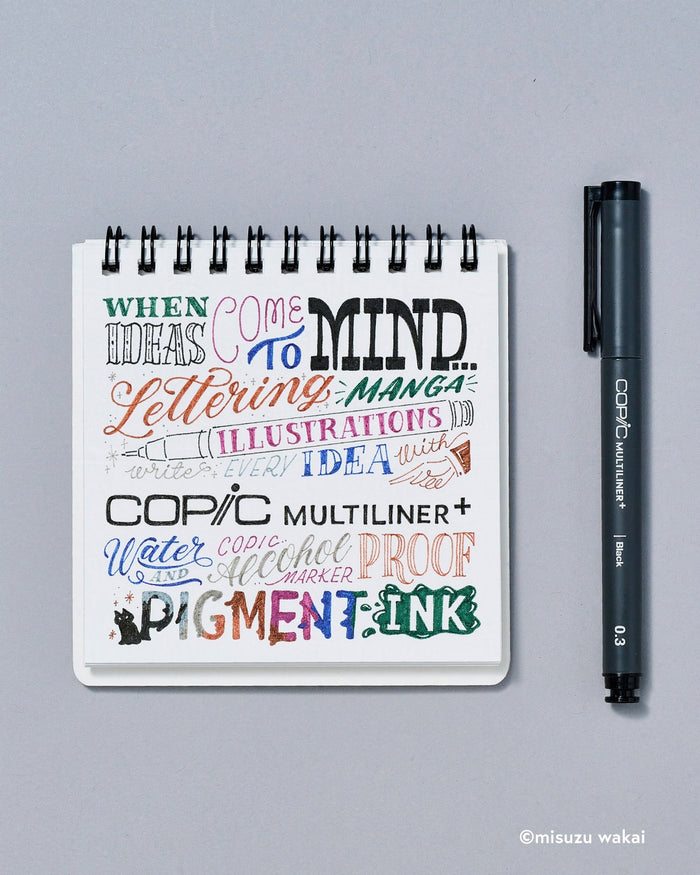 WHEN IDEAS COME TO MIND...
Lettering MANGA
ILLUSTRATIONS
write EVERY IDEA with
COPIC MULTILINER+
Water AND COPIC Alcohol MARKER PROOF
PIGMENT INK
COPIC MULTILINER+ | Black 0.3
©misuzu wakai